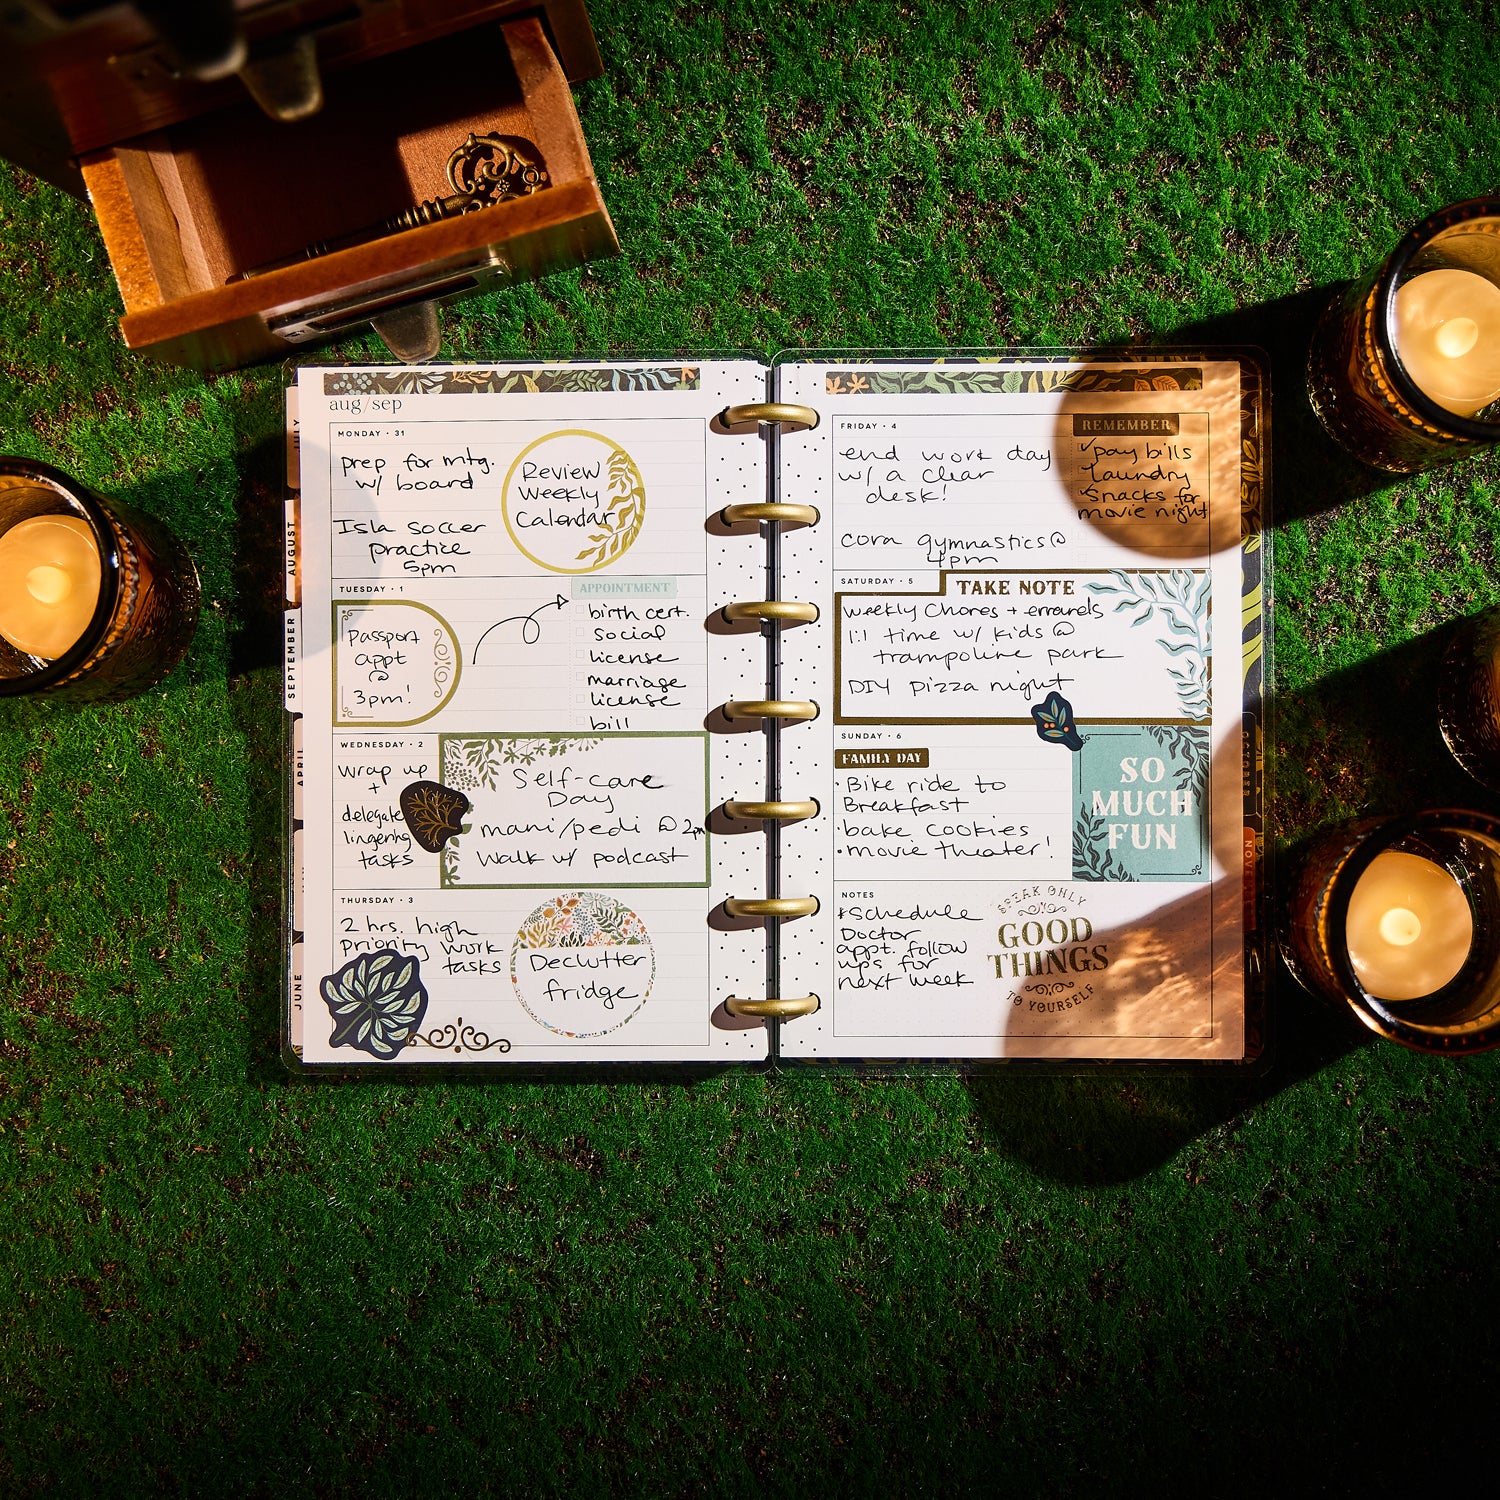 aug/sep
MONDAY • 31
prep for mtg.
w/ board
Isla soccer
practice
5pm
Review
Weekly
Calendar
TUESDAY • 1
Passport
appt
@
3pm!
APPOINTMENT
birth cert.
social
license
marriage
license
bill
WEDNESDAY • 2
wrap up
+
delegate
lingering
tasks
Self-care
Day
mani/pedi @ 2pm
Walk w/ podcast
THURSDAY • 3
2 hrs. high
priority work
tasks
Declutter
fridge
FRIDAY • 4
end work day
w/ a clear
desk!
cora gymnastics @
4pm
REMEMBER
pay bills
laundry
snacks for
movie night
SATURDAY • 5
TAKE NOTE
weekly Chores + errands
1:1 time w/ kids @
trampoline park
DIY pizza night
SUNDAY • 6
FAMILY DAY
• Bike ride to
Breakfast
• bake cookies
• movie theater!
SO
MUCH
FUN
NOTES
*schedule
Doctor
appt. follow
ups for
next week
SPEAK ONLY
GOOD
THINGS
TO YOURSELF
JULY
AUGUST
SEPTEMBER
APRIL
JUNE
OCTOBER